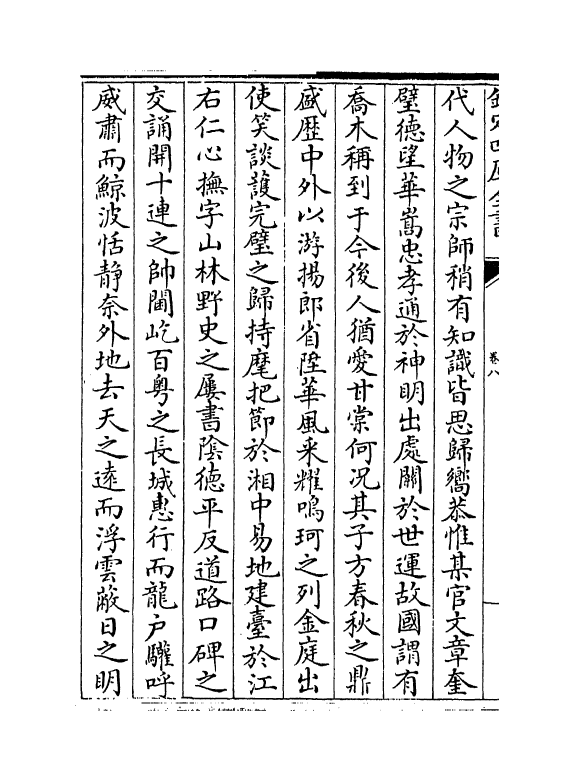 欽定四庫全書
卷八
代人物之宗師稍有知識皆思歸嚮恭惟某官文章奎
璧德望華嵩忠孝通於神明出處關於世運故國謂有
喬木稱到于今後人猶愛甘棠何況其子方春秋之鼎
盛歷中外以游揚郎省陞華風采耀鳴珂之列金庭出
使笑談護完璧之歸持麾把節於湘中易地建臺於江
右仁心撫字山林野史之屢書陰德平反道路口碑之
交誦開十連之帥閫屹百粤之長城惠行而龍户驩呼
威肅而鯨波恬静奈外地去天之遠而浮雲蔽日之明